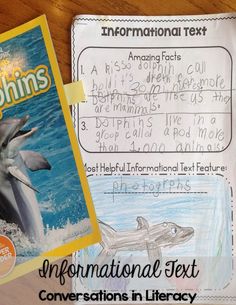 Informational Text
Amazing Facts
1. A kisso dolphin call
hold it's breth for more
30 min
2. Dolphins are like us they
are mammals
3. Dolphins live in a
group called a pod more
than 1,000 animals
Most Helpful Informational Text Feature:
photogrphs
phins
Informational Text
Conversations in Literacy